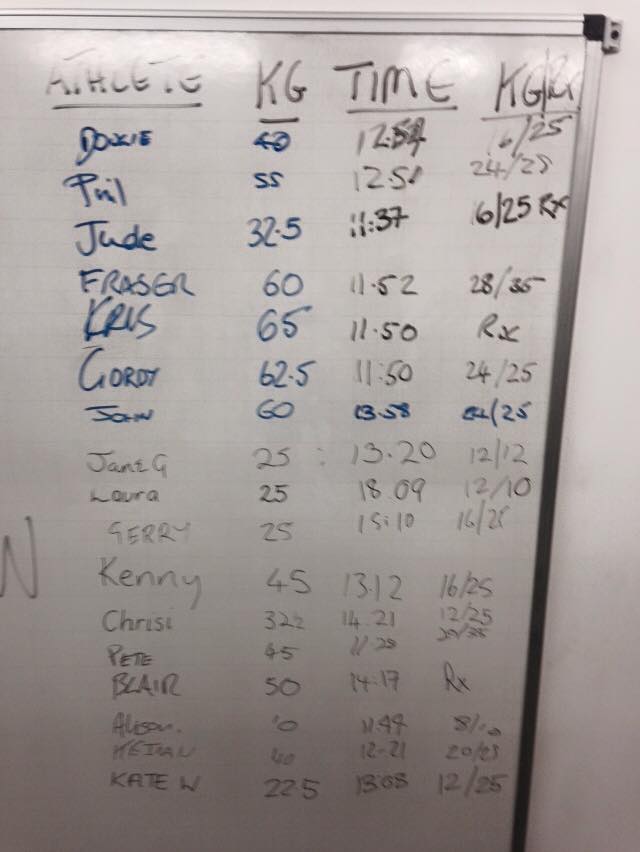 ATHLETE KG TIME KG/Rx
40 16/25
Phil 55 12.51 24/25
Jude 32.5 11:37 16/25 Rx
FRASER 60 11.52 28/35
KRIS 65 11.50 Rx
GORDY 62.5 11:50 24/25
JOHN 60 13.58 24/25
Jane G 25 : 13.20 12/12
Laura 25 18.09 12/10
GERRY 25 15:10 16/25
N
Kenny 45 13.12 16/25
Chrisi 14.21 12/25
PETE 45
BLAIR 50 14.17 Rx
Alison. 11.44
12.21
KATE W 22.5 13:08 12/25